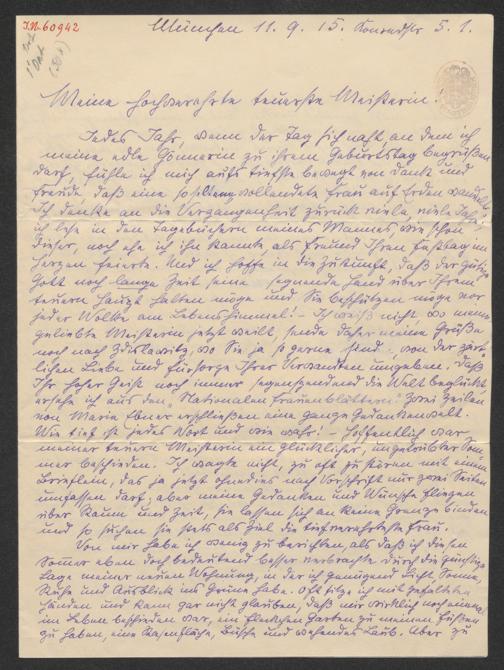 I.N. 60942
München 11. 9. 15. Konradstr 5. 1.
Meine hochverehrte teuerste Meisterin!
Jedes Jahr, wenn der Tag sich naht, an dem ich
meine edle Gönnerin zu ihrem Geburtstag begrüßen
darf, fühle ich mich aufs tiefste bewegt von Dank und
Freude, daß eine so vollendete Frau auf Erden wandelt.
Ich denke an die Vergangenheit zurück viele, viele Jahre,
ich lese in den Tagebüchern meines Mannes, wie schon
dieser, noch ehe ich ihn kannte als Freund Ihren Festtag im
Herzen feierte. Und ich hoffe in die Zukunft, daß der gütige
Gott noch lange Zeit seine segnende Hand über Ihrem
teuern Haupt halten möge und Sie beschützen möge vor
jeder Wolke am Lebenshimmel! – Ich weiß nicht wo meine
geliebte Meisterin jetzt weilt, sende daher meine Grüße
noch nach Zdislawitz, wo Sie ja so gerne sind, von der zärt-
lichen Liebe und Fürsorge Ihrer Verwandten umgeben. Daß
Ihr hoher Geist noch immer segenspendend die Welt beglückt
ersehe ich aus den "Nationalen Frauenblättern" zwei Zeilen
von Marie Ebner erschließen eine ganze Gedankenwelt.
Wie tief ist jedes Wort und wie wahr! – Hoffentlich war
meiner teuern Meisterin ein glücklicher, ungetrübter Som-
mer beschieden. Ich wagte nicht, zu oft zu stören mit einem
Brieflein, das ja jetzt ohnedies nach Vorschrift nur zwei Seiten
umfassen darf; aber meine Gedanken und Wünsche fliegen
über Raum und Zeit, sie lassen sich an keine Grenze binden
und so suchen sie stets als Ziel die tiefverehrteste Frau.
Von mir habe ich wenig zu berichten, als daß ich diesen
Sommer eben doch bedeutend besser verbrachte durch die günstige
Lage meiner neuen Wohnung, in der ich genügend Licht, Sonne,
Ruhe und Ausblick ins Grüne habe. Oft sitze ich mit gefalteten
Händen und kann gar nicht glauben, daß mir wirklich noch einmal
im Leben beschieden war, ein Fleckchen Garten zu meinen Füßen
zu haben, eine Rasenfläche, Büsche und wehendes Laub. Aber zu